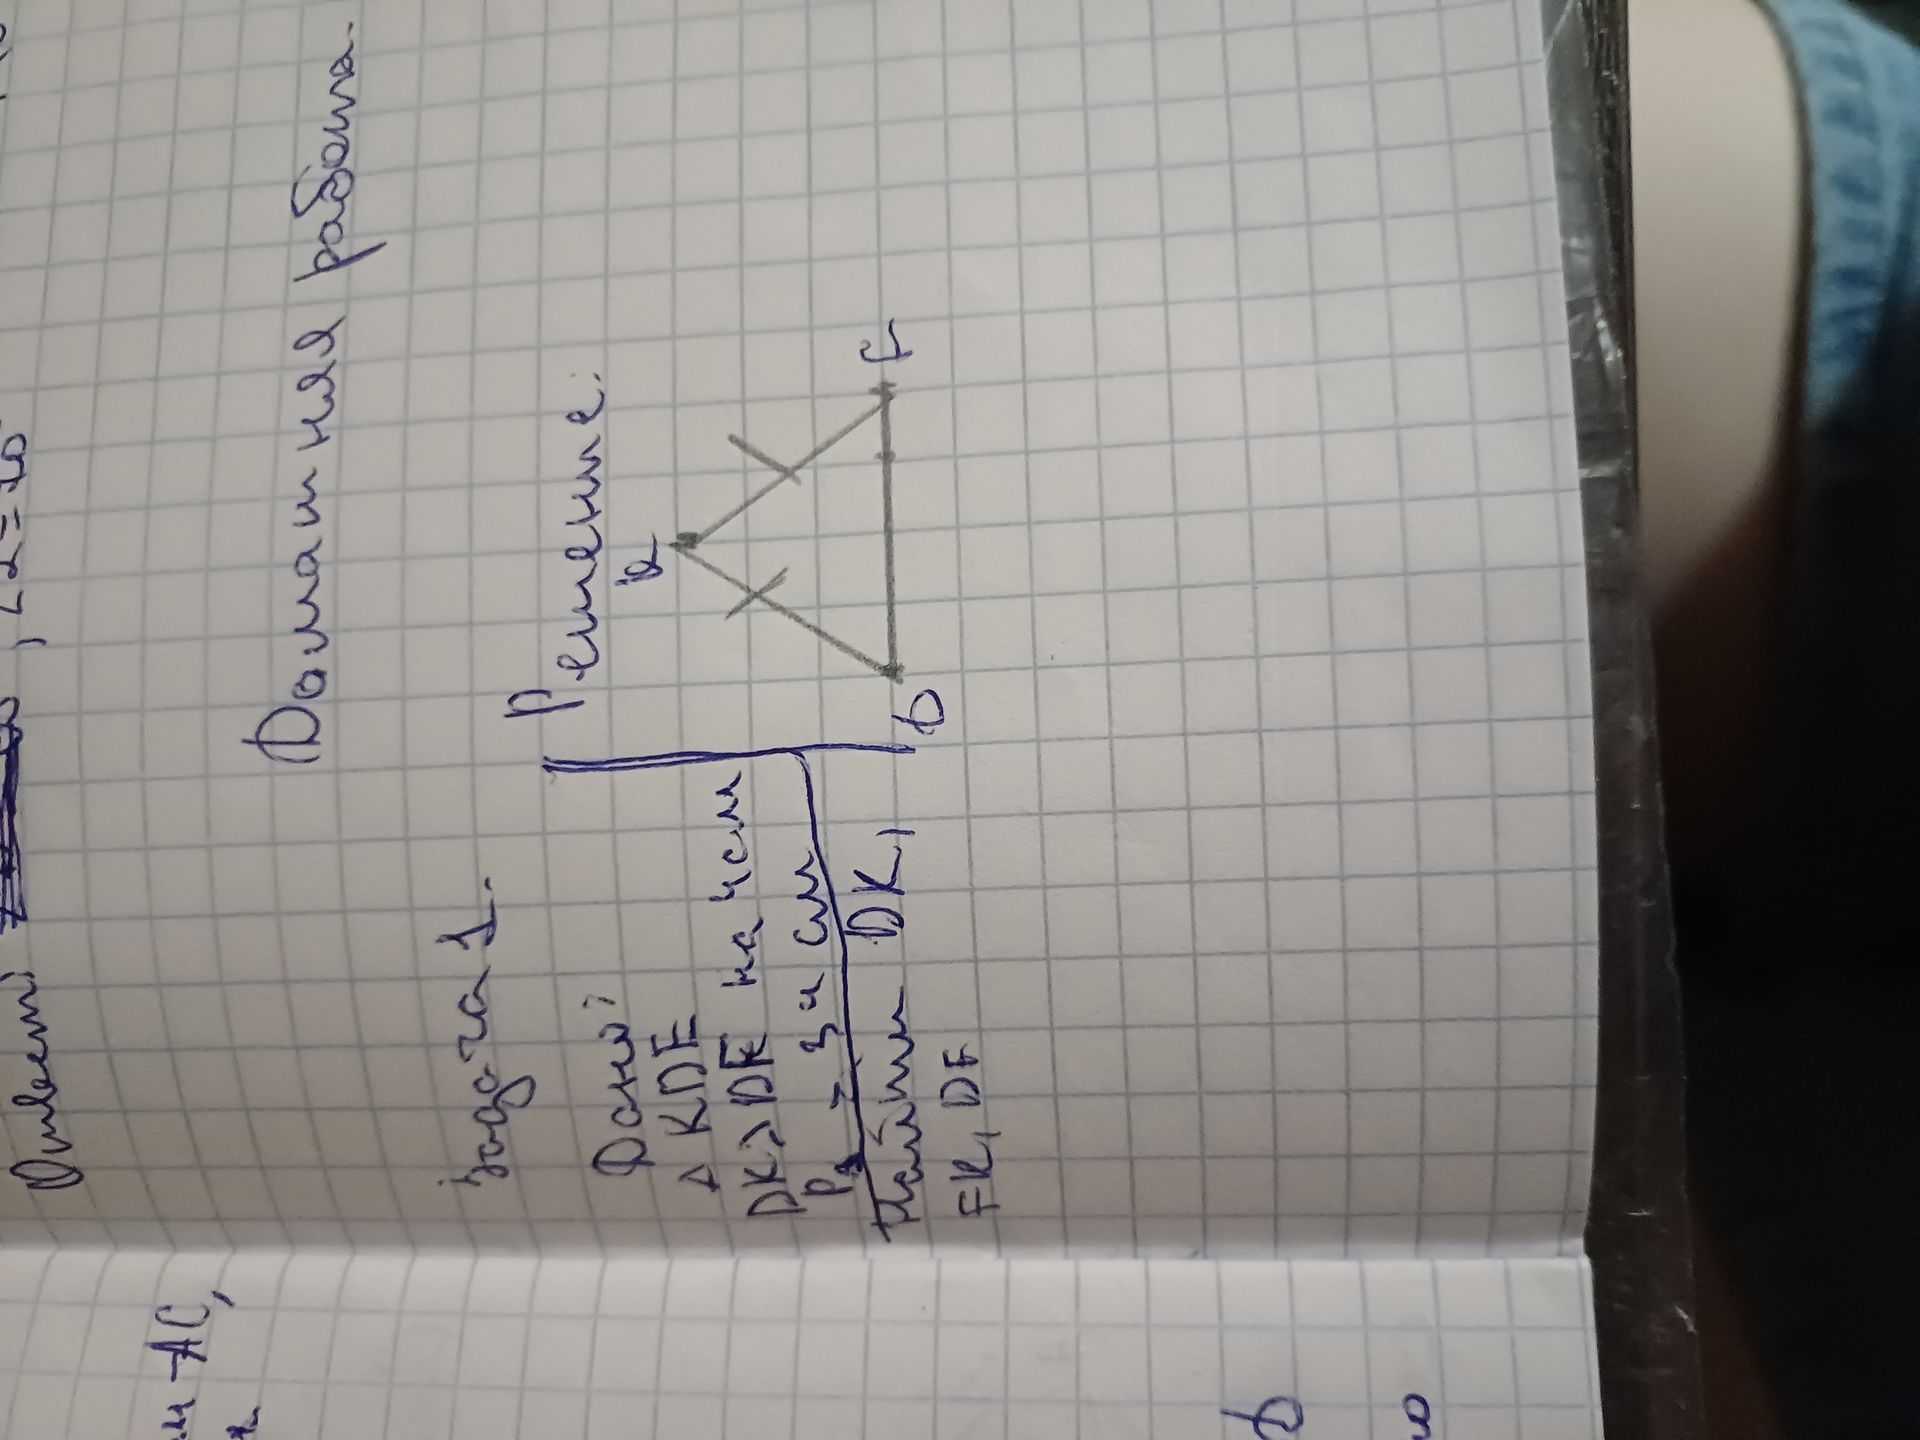 Ответ
, ∠2 =
Домашняя работа.
Задача 1.
Дано:
△ KDF
DK > DF на 4 см
P = 34 см
Найти DK,
FK, DF
Решение:
K
D
F
AC,